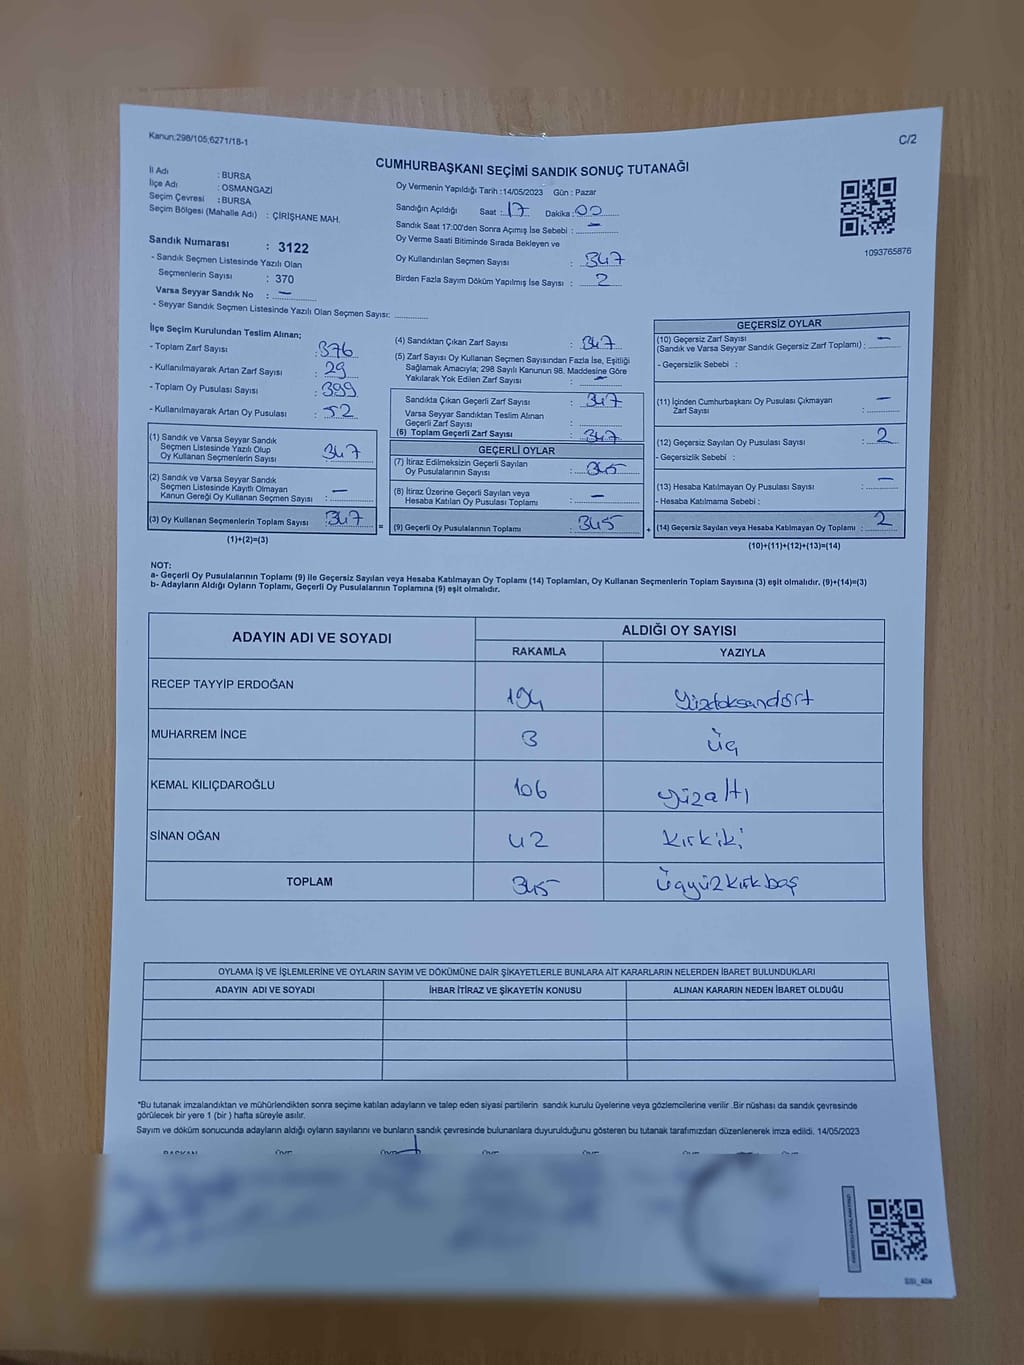 Kanun;298/105;6271/18-1
C/2
CUMHURBAŞKANI SEÇİMİ SANDIK SONUÇ TUTANAĞI
İl Adı : BURSA
İlçe Adı : OSMANGAZİ
Seçim Çevresi : BURSA
Seçim Bölgesi (Mahalle Adı) : ÇİRİŞHANE MAH.
Sandık Numarası : 3122
- Sandık Seçmen Listesinde Yazılı Olan
Seçmenlerin Sayısı : 370
Varsa Seyyar Sandık No : —
- Seyyar Sandık Seçmen Listesinde Yazılı Olan Seçmen Sayısı:
Oy Vermenin Yapıldığı Tarih :14/05/2023 Gün : Pazar
Sandığın Açıldığı Saat : 17 Dakika : 00
Sandık Saat 17:00'den Sonra Açımış İse Sebebi : —
Oy Verme Saati Bitiminde Sırada Bekleyen ve
Oy Kullandırılan Seçmen Sayısı : 347
Birden Fazla Sayım Döküm Yapılmış İse Sayısı : 2
1093765876
İlçe Seçim Kurulundan Teslim Alınan;
- Toplam Zarf Sayısı : 376
- Kullanılmayarak Artan Zarf Sayısı : 29
- Toplam Oy Pusulası Sayısı : 399
- Kullanılmayarak Artan Oy Pusulası : 52
(1) Sandık ve Varsa Seyyar Sandık
Seçmen Listesinde Yazılı Olup
Oy Kullanan Seçmenlerin Sayısı 347
(2) Sandık ve Varsa Seyyar Sandık
Seçmen Listesinde Kayıtlı Olmayan
Kanun Gereği Oy Kullanan Seçmen Sayısı : —
(3) Oy Kullanan Seçmenlerin Toplam Sayısı : 347
(1)+(2)=(3)
=
(4) Sandıktan Çıkan Zarf Sayısı : 347
(5) Zarf Sayısı Oy Kullanan Seçmen Sayısından Fazla İse, Eşitliği
Sağlamak Amacıyla; 298 Sayılı Kanunun 98. Maddesine Göre
Yakılarak Yok Edilen Zarf Sayısı : —
Sandıkta Çıkan Geçerli Zarf Sayısı : 347
Varsa Seyyar Sandıktan Teslim Alınan
Geçerli Zarf Sayısı :
(6) Toplam Geçerli Zarf Sayısı : 347
GEÇERLİ OYLAR
(7) İtiraz Edilmeksizin Geçerli Sayılan
Oy Pusulalarının Sayısı : 345
(8) İtiraz Üzerine Geçerli Sayılan veya
Hesaba Katılan Oy Pusulası Toplamı : —
(9) Geçerli Oy Pusulalarının Toplamı : 345
+
GEÇERSİZ OYLAR
(10) Geçersiz Zarf Sayısı
(Sandık ve Varsa Seyyar Sandık Geçersiz Zarf Toplamı) : —
- Geçersizlik Sebebi :
(11) İçinden Cumhurbaşkanı Oy Pusulası Çıkmayan
Zarf Sayısı : —
(12) Geçersiz Sayılan Oy Pusulası Sayısı : 2
- Geçersizlik Sebebi :
(13) Hesaba Katılmayan Oy Pusulası Sayısı : —
- Hesaba Katılmama Sebebi :
(14) Geçersiz Sayılan veya Hesaba Katılmayan Oy Toplamı : 2
(10)+(11)+(12)+(13)=(14)
NOT:
a- Geçerli Oy Pusulalarının Toplamı (9) ile Geçersiz Sayılan veya Hesaba Katılmayan Oy Toplamı (14) Toplamları, Oy Kullanan Seçmenlerin Toplam Sayısına (3) eşit olmalıdır. (9)+(14)=(3)
b- Adayların Aldığı Oyların Toplamı, Geçerli Oy Pusulalarının Toplamına (9) eşit olmalıdır.
ADAYIN ADI VE SOYADI ALDIĞI OY SAYISI
RAKAMLA YAZIYLA
RECEP TAYYİP ERDOĞAN 194 Yüzdoksandört
MUHARREM İNCE 3 üç
KEMAL KILIÇDAROĞLU 106 yüzaltı
SİNAN OĞAN 42 kırkiki
TOPLAM 345 üçyüzkırkbeş
OYLAMA İŞ VE İŞLEMLERİNE VE OYLARIN SAYIM VE DÖKÜMÜNE DAİR ŞİKAYETLERLE BUNLARA AİT KARARLARIN NELERDEN İBARET BULUNDUKLARI
ADAYIN ADI VE SOYADI İHBAR İTİRAZ VE ŞİKAYETİN KONUSU ALINAN KARARIN NEDEN İBARET OLDUĞU
*Bu tutanak imzalandıktan ve mühürlendikten sonra seçime katılan adayların ve talep eden siyasi partilerin sandık kurulu üyelerine veya gözlemcilerine verilir .Bir nüshası da sandık çevresinde
görülecek bir yere 1 (bir ) hafta süreyle asılır.
Sayım ve döküm sonucunda adayların aldığı oyların sayılarını ve bunların sandık çevresinde bulunanlara duyurulduğunu gösteren bu tutanak tarafımızdan düzenlenerek imza edildi. 14/05/2023